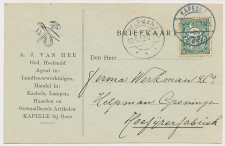 BRIEFKAART
A. J. VAN HEE
Ged. Hoefsmid
Agent in:
Landbouwwerktuigen,
Handel in:
Kachels, Lampen,
Haarden en
Geëmailleerde Artikelen
KAPELLE bij Goes
Den Heer
Firma Werkman & Co
Helpman Groningen
Hoefijzerfabriek
KAPELLE